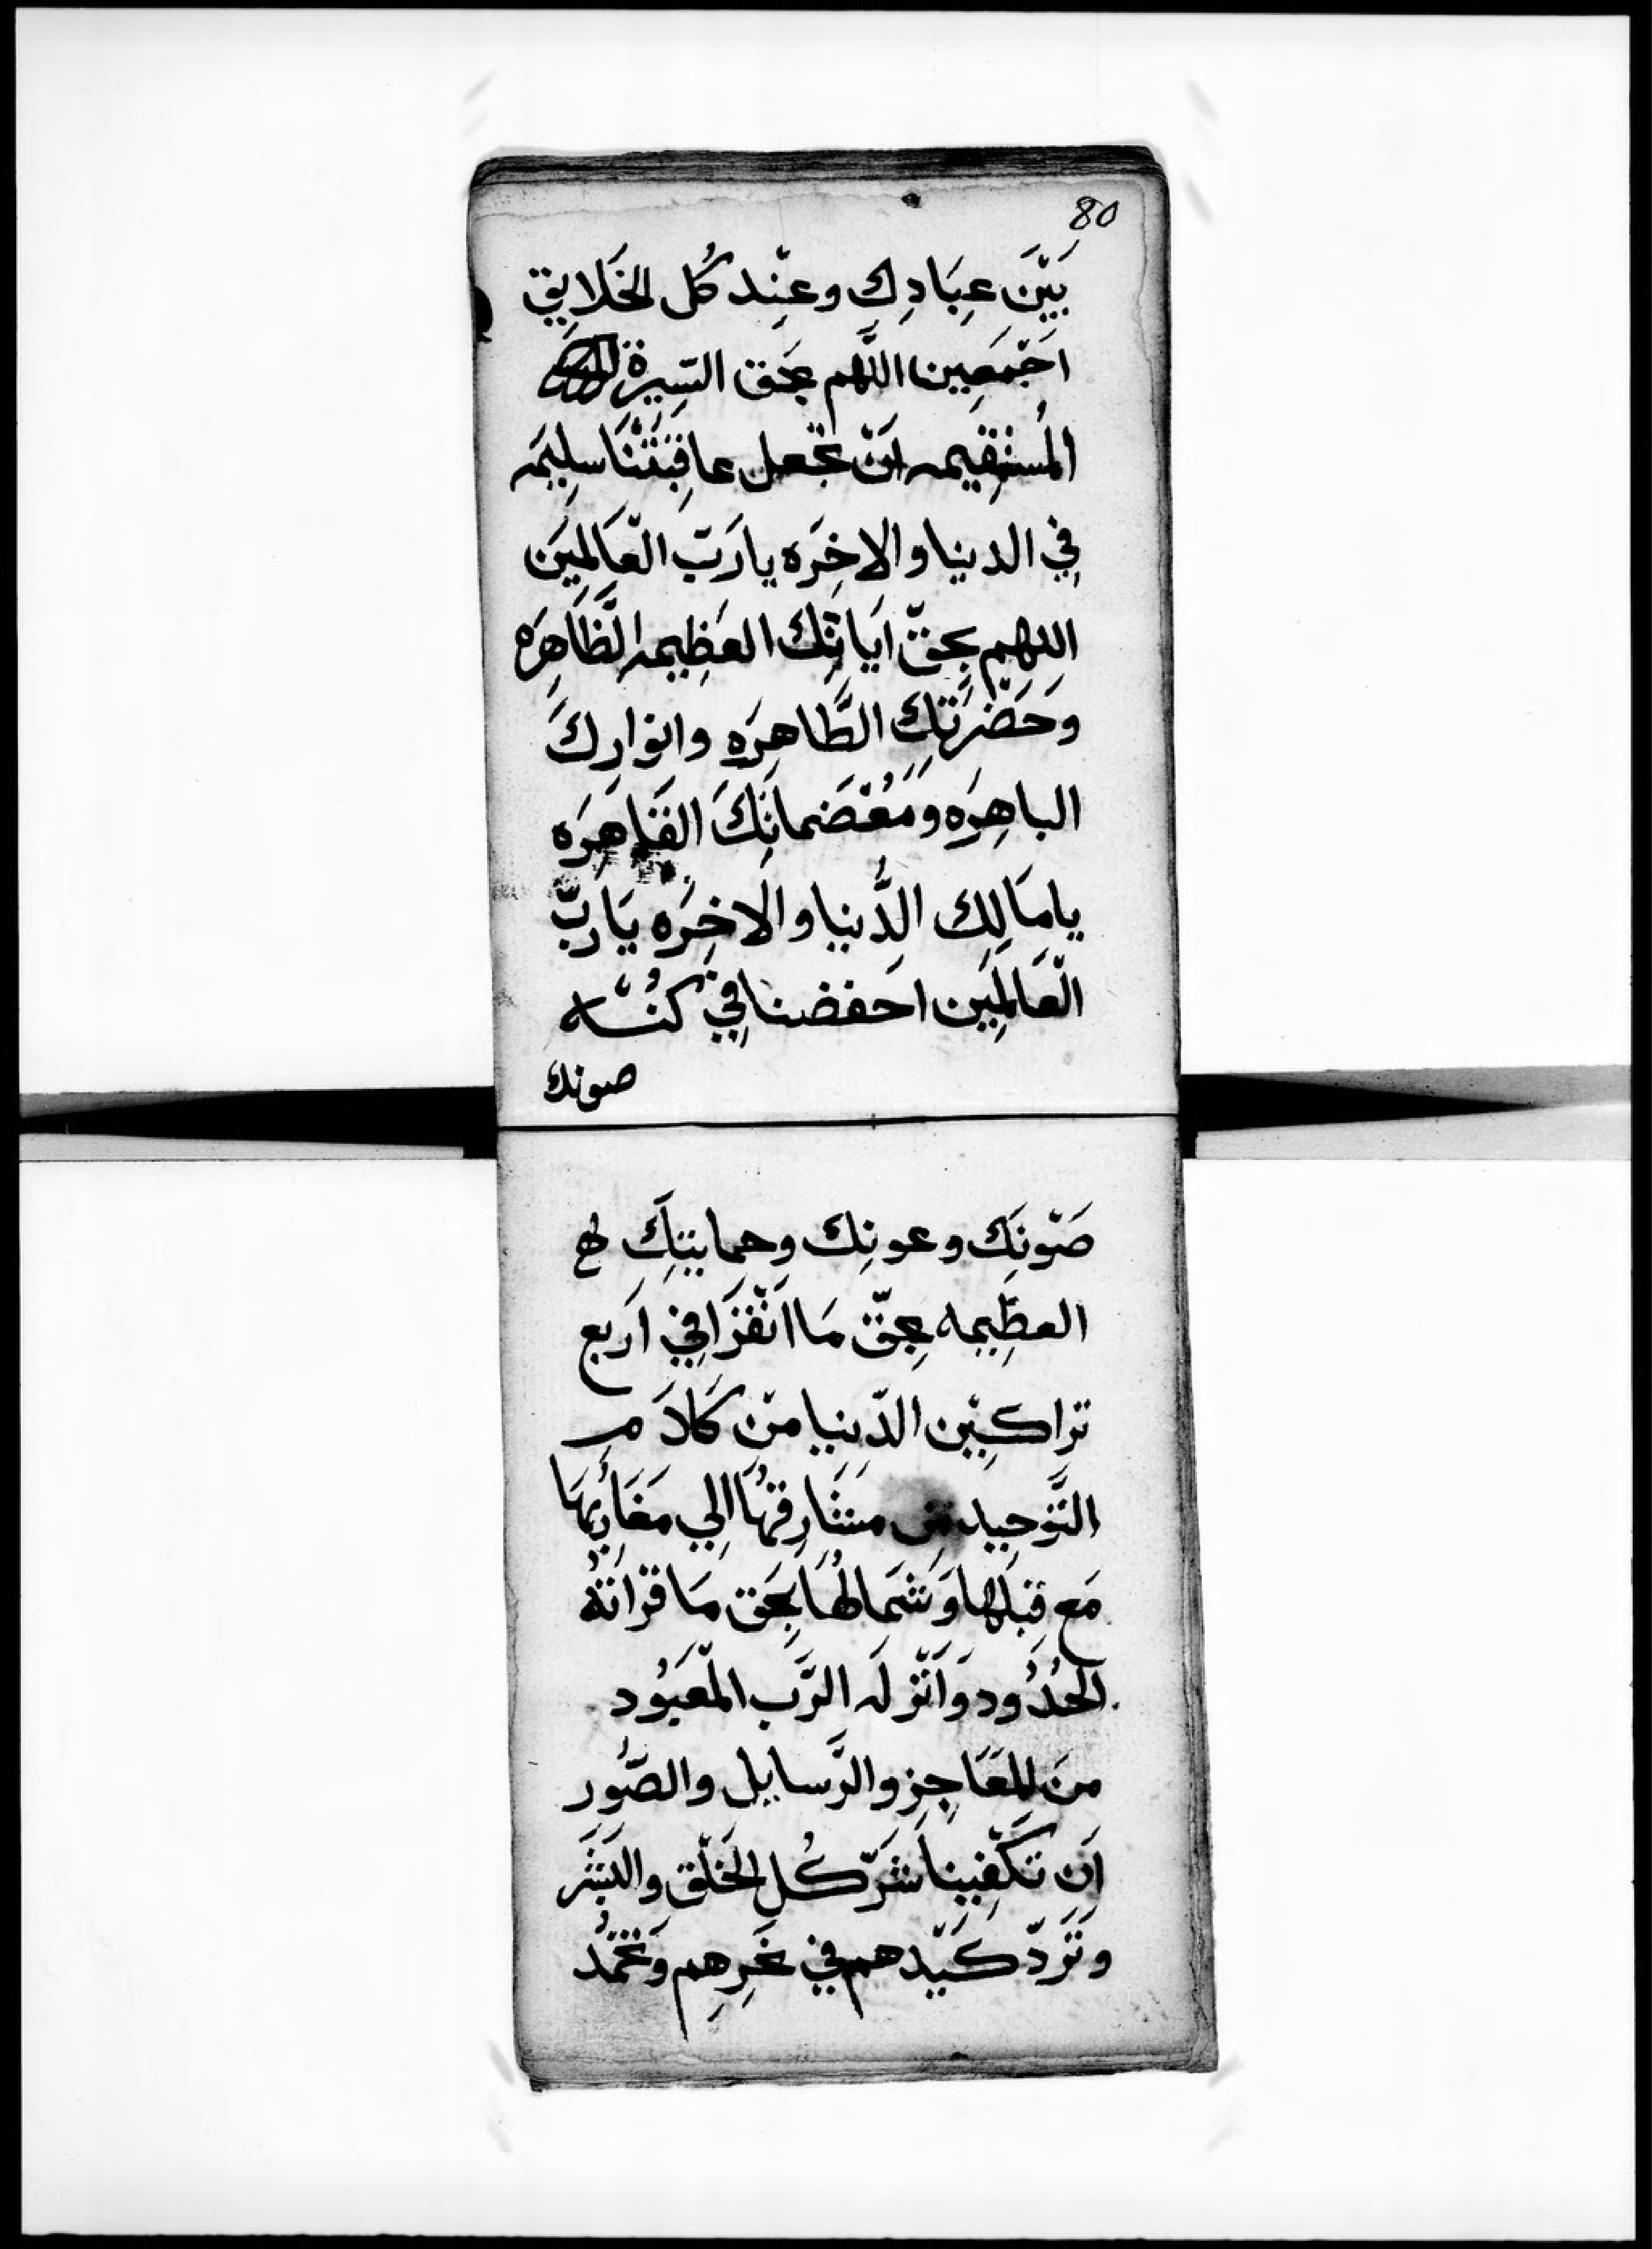 80
بَيّنَ عِبَادِك وعنِّد كُل الخَلايِق
اجَّمَعِين اللَّهم بحَق السِّيرة
المُستقِيمه انَّ تجّعل عاقِبَتَّنَا سلِيمَه
فِي الدنيا والاخِرَه يا رَبّ الّعَالمِيَن
اللهم بحقّ ايَاتِك العَظِيمه الظَّاهِرَه
وَحَضّرَتك الطَّاهِرَه وانوارِكَ
الباهِرَه ومُعَّضَماتِكَ القَاهِرَه
يا مَالِك الدُّنيا والاخِرَه يَارَبّ
الّعَالمِيَن احَفضنا فِي كنُّه
صونك
صَوّنِك وعونِك وحمايتِك
العظِيمه بحِقّ مَا اتّقَرَا فِي ارَبع
تراكيّن الدّنِيا منّ كَلاَم
التَّوحِيد من مشَارِقهَا الِي مغَارِبهَا
مَع قِبَلها وَشمَالهَا بِحَق مَا قراتهُ
الحُدُود وَانّزلَه الرَّب المّعبُود
منَ المعَاجِز والرَّسايل والصُّور
اَن تكّفِينا شَرّ كُل الخَلّق والبَشَر
وتَردّ كَيّدهم في نحَرِهِم وَتخمُّد